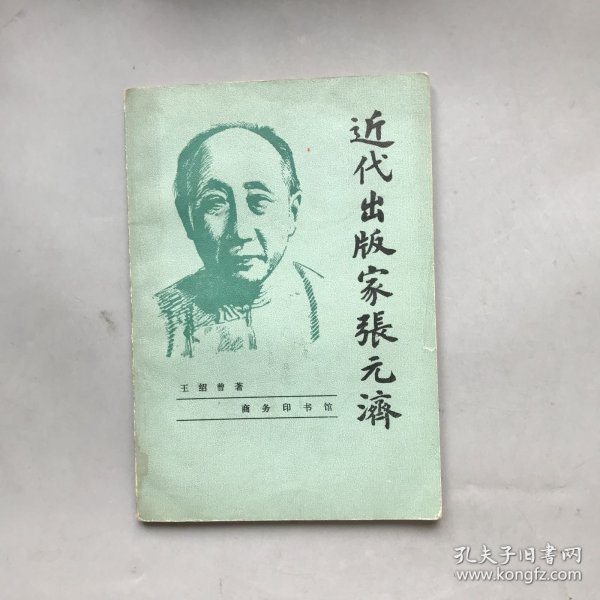 近代出版家張元濟
王绍曾著
商务印书馆
孔夫子旧书网
www.kongfz.com